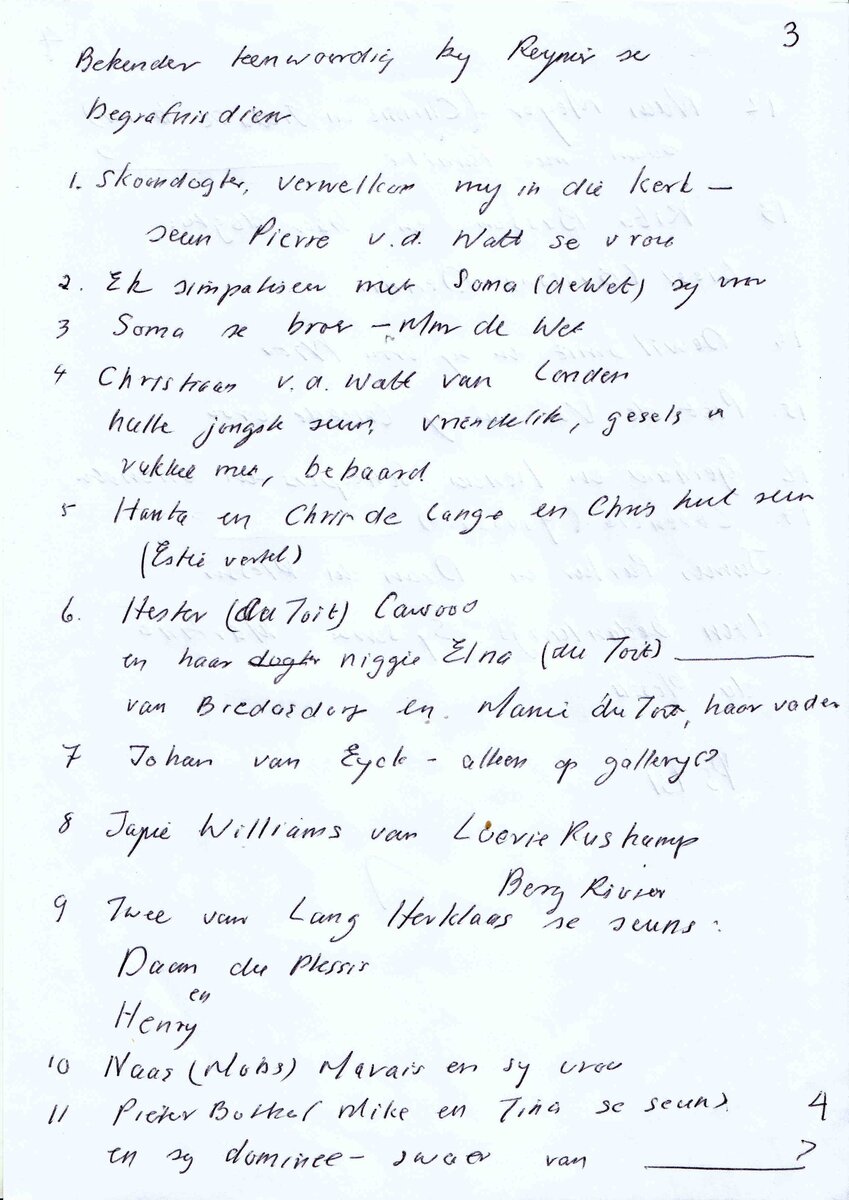 3
Bekender teenwoordig by Reynier se
begrafnisdien
1. Skoondogter, verwelkom my in die kerk –
seun Pierre v.d. Watt se vrou
2. Ek simpatiseer met Soma (de Wet) sy vrou
3 Soma se broer – Mnr de Wet
4 Christiaan v.d. Watt van Londen
hulle jongste seun, vriendelik, gesels
mee, bebaard
5 Hanta en Chris de Lange en Chris hul seun
(Estie vertel)
6. Hester (du Toit) Cawood
en haar dogter niggie Elna (du Toit) ________
van Bredasdorp en Manie du Toit, haar vader
7 Johan van Eyck – alleen op gallery
8 Japie Williams van Loerie Ruskamp
Berg Rivier
9 Twee van Lang Herklaas se seuns:
Daan du Plessis
en
Henry
10 Naas (Mobs) Marais en sy vrou
11 Pieter Botha (Mike en Tina se seun) 4
en sy dominee – swaer van ________ ?